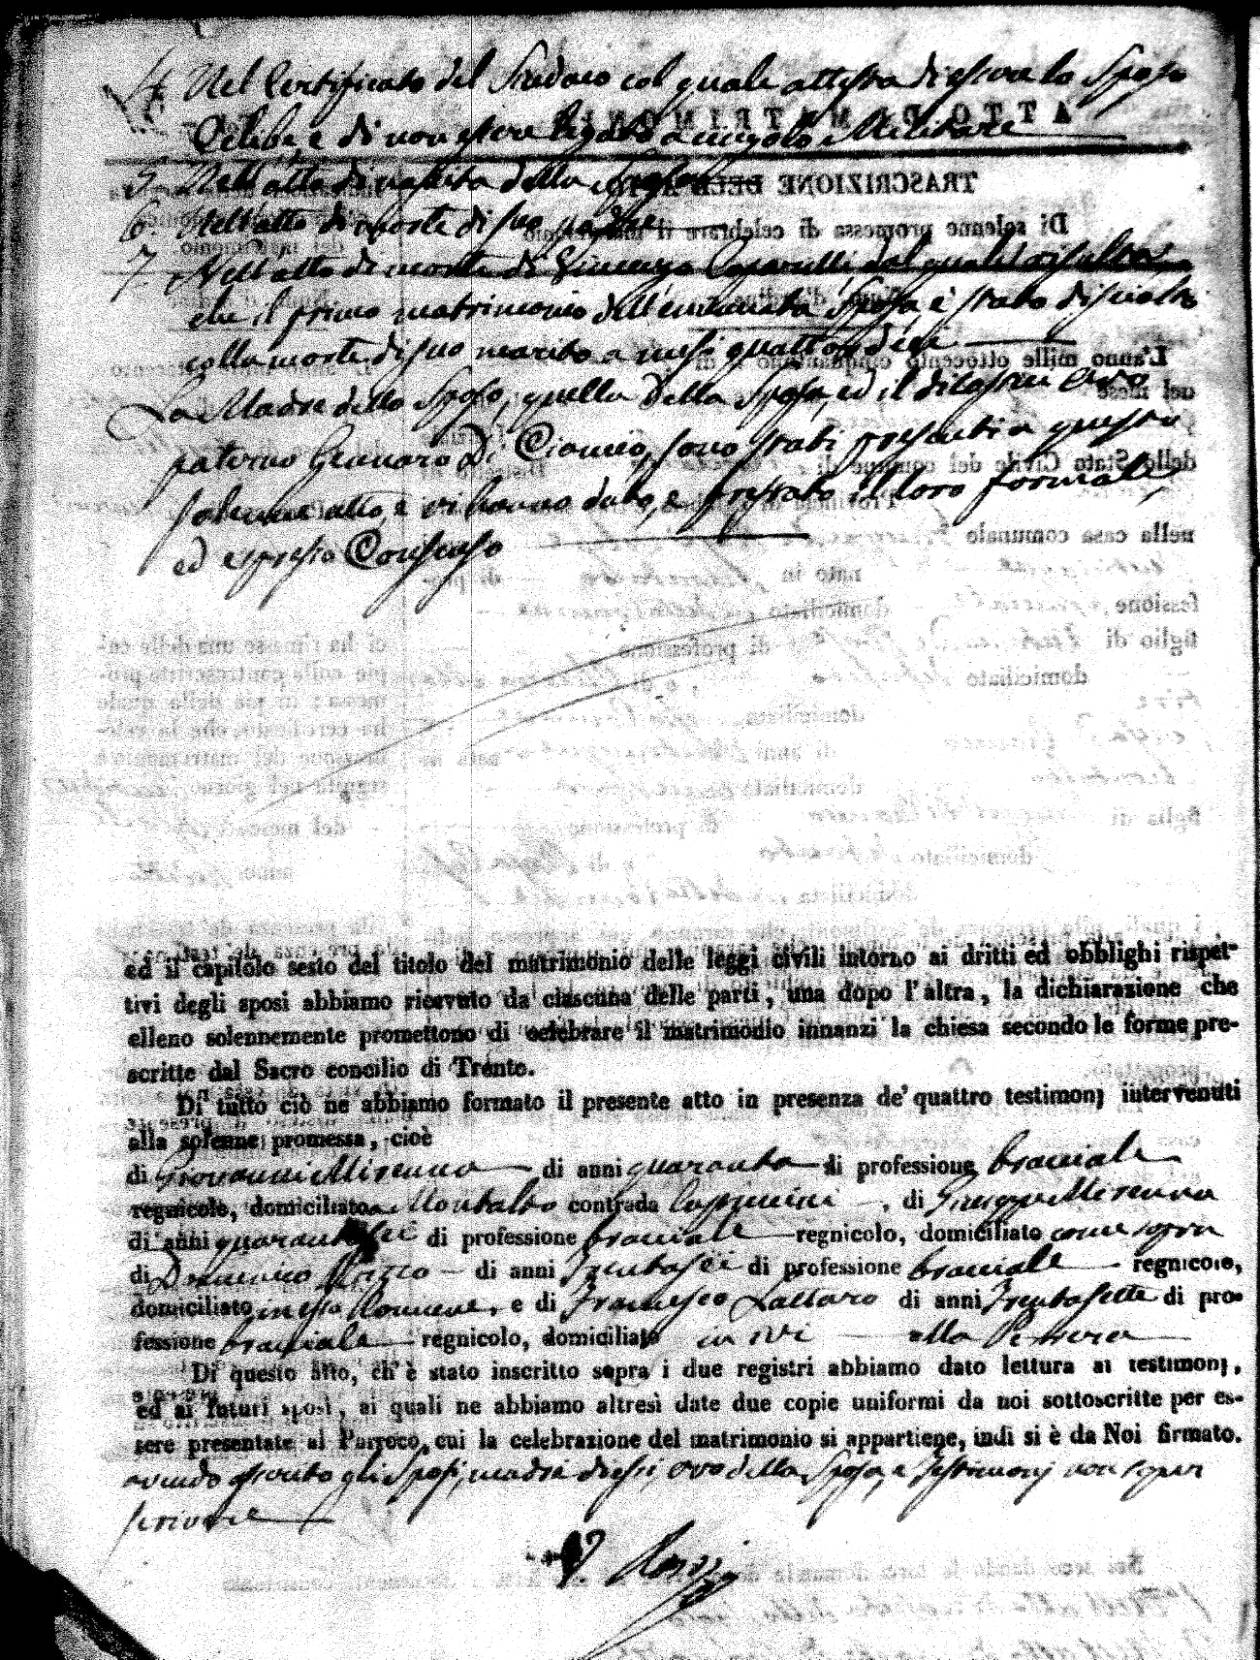 4. Nel Certificato del Sindaco col quale attesta di essere lo Sposo
Celibe, e di non essere legato a vincolo Militare
5. Nell'atto di nascita della Sposa
6. Nell'atto di morte di suo padre
7. Nell'atto di morte di Vincenzo dal quale risulta
che il primo matrimonio dell'enunciata Sposa, è stato disciolto
colla morte di suo marito a mesi quattordici
La Madre dello Sposo, quella della Sposa, ed il di costei Avo
paterno Gennaro Di Cianno, sono stati presenti a questo
solenne atto, e vi hanno dato, e prestato il loro formale,
ed espresso Consenso
ed il capitolo sesto del titolo del matrimonio delle leggi civili intorno ai dritti ed obblighi rispet-
tivi degli sposi abbiamo ricevuto da ciascuna delle parti, una dopo l'altra, la dichiarazione che
elleno solennemente promettono di celebrare il matrimonio innanzi la chiesa secondo le forme pre-
scritte dal Sacro concilio di Trento.
Di tutto ciò ne abbiamo formato il presente atto in presenza de' quattro testimonj intervenuti
alla solenne promessa, cioè
di Giovanni Mirenna di anni quaranta di professione bracciale
regnicolo, domiciliato Montalto contrada, di Giuseppe Mirenna
di anni quarantasei di professione bracciale regnicolo, domiciliato come sopra
di Domenico di anni trentasei di professione bracciale regnicolo,
domiciliato in essa Comune, e di Francesco Lattaro di anni trentasette di pro-
fessione bracciale regnicolo, domiciliato in ivi alla
Di questo atto, ch'è stato inscritto sopra i due registri abbiamo dato lettura ai testimonj,
ed ai futuri sposi, ai quali ne abbiamo altresì date due copie uniformi da noi sottoscritte per es-
sere presentate al Parroco, cui la celebrazione del matrimonio si appartiene, indi si è da Noi firmato.
avendo asserito gli Sposi, madri di essi, avo della Sposa, e Testimonj non saper
scrivere